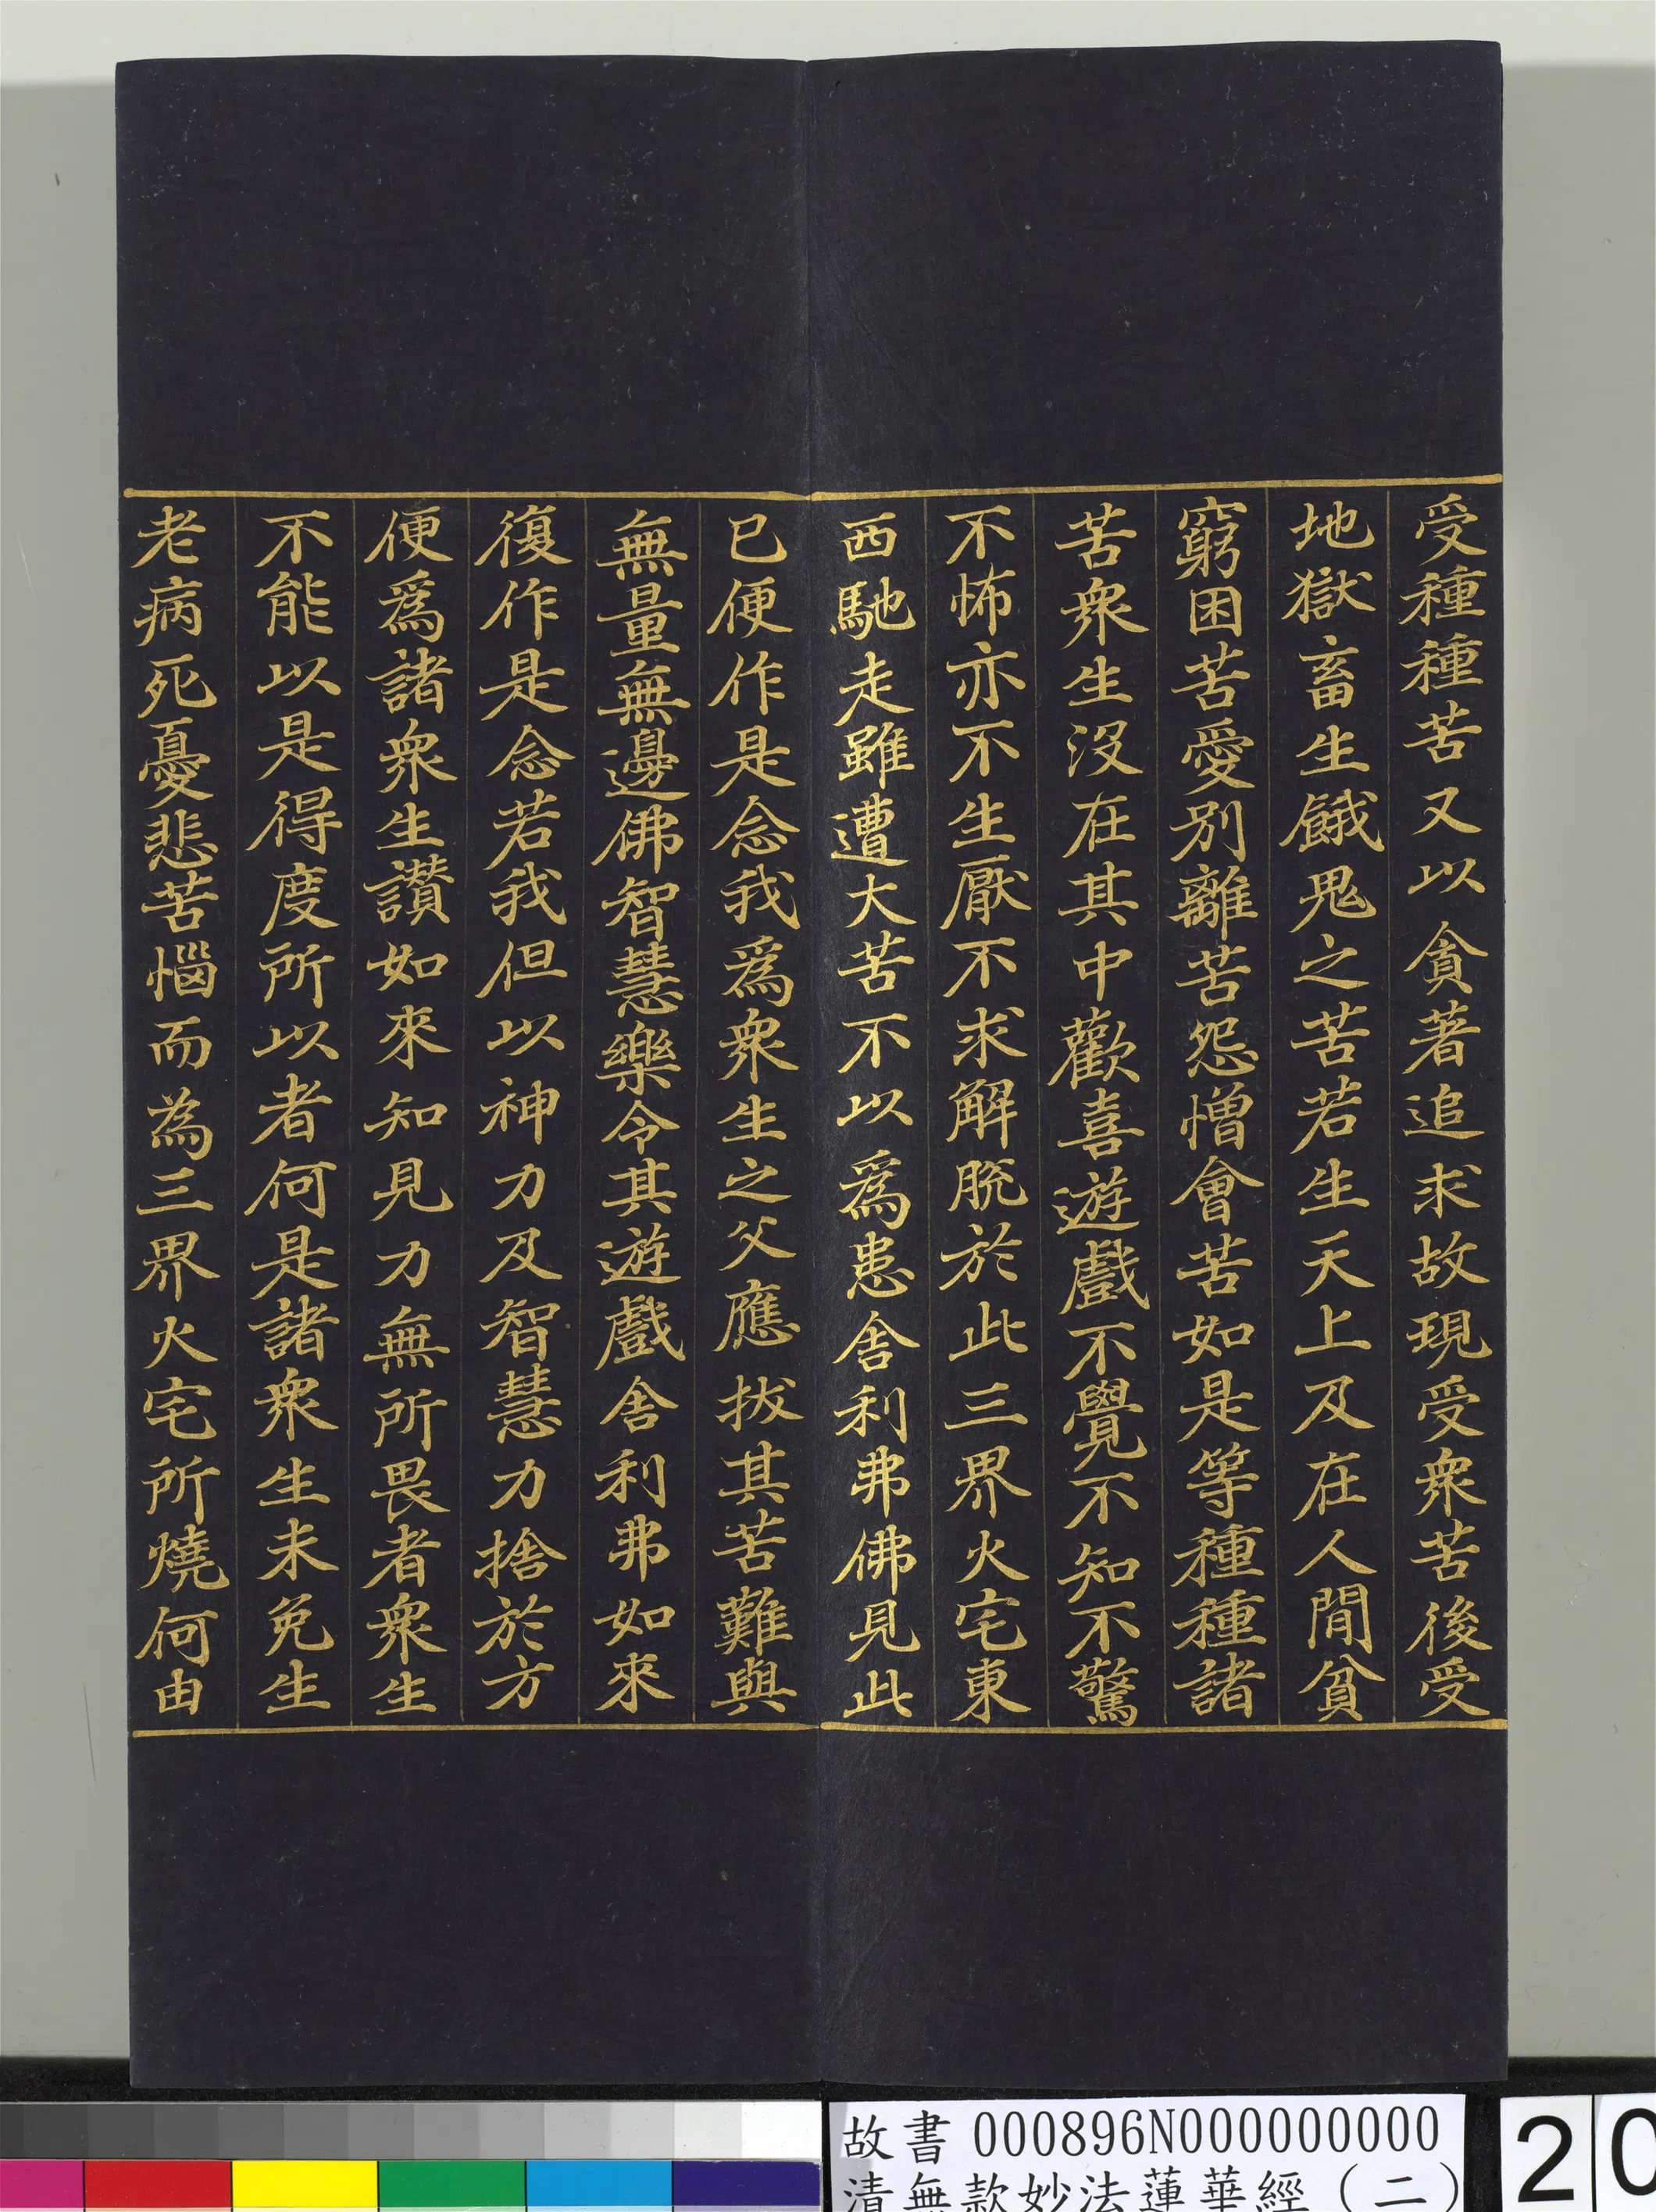 受種種苦又以貪著追求故現受衆苦後受
地獄畜生餓鬼之苦若生天上及在人間貧
窮困苦愛別離苦怨憎會苦如是等種種諸
苦衆生沒在其中歡喜遊戲不覺不知不驚
不怖亦不生厭不求解脫於此三界火宅東
西馳走雖遭大苦不以爲患舍利弗佛見此
已便作是念我爲衆生之父應拔其苦難與
無量無邊佛智慧樂令其遊戲舍利弗如來
復作是念若我但以神力及智慧力捨於方
便爲諸衆生讚如來知見力無所畏者衆生
不能以是得度所以者何是諸衆生未免生
老病死憂悲苦惱而為三界火宅所燒何由
故書 000896N000000000
清無款妙法蓮華經（二）
20